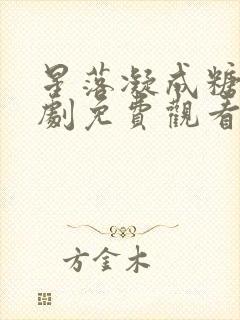 星落凝成糖
劇免費觀看
方金木